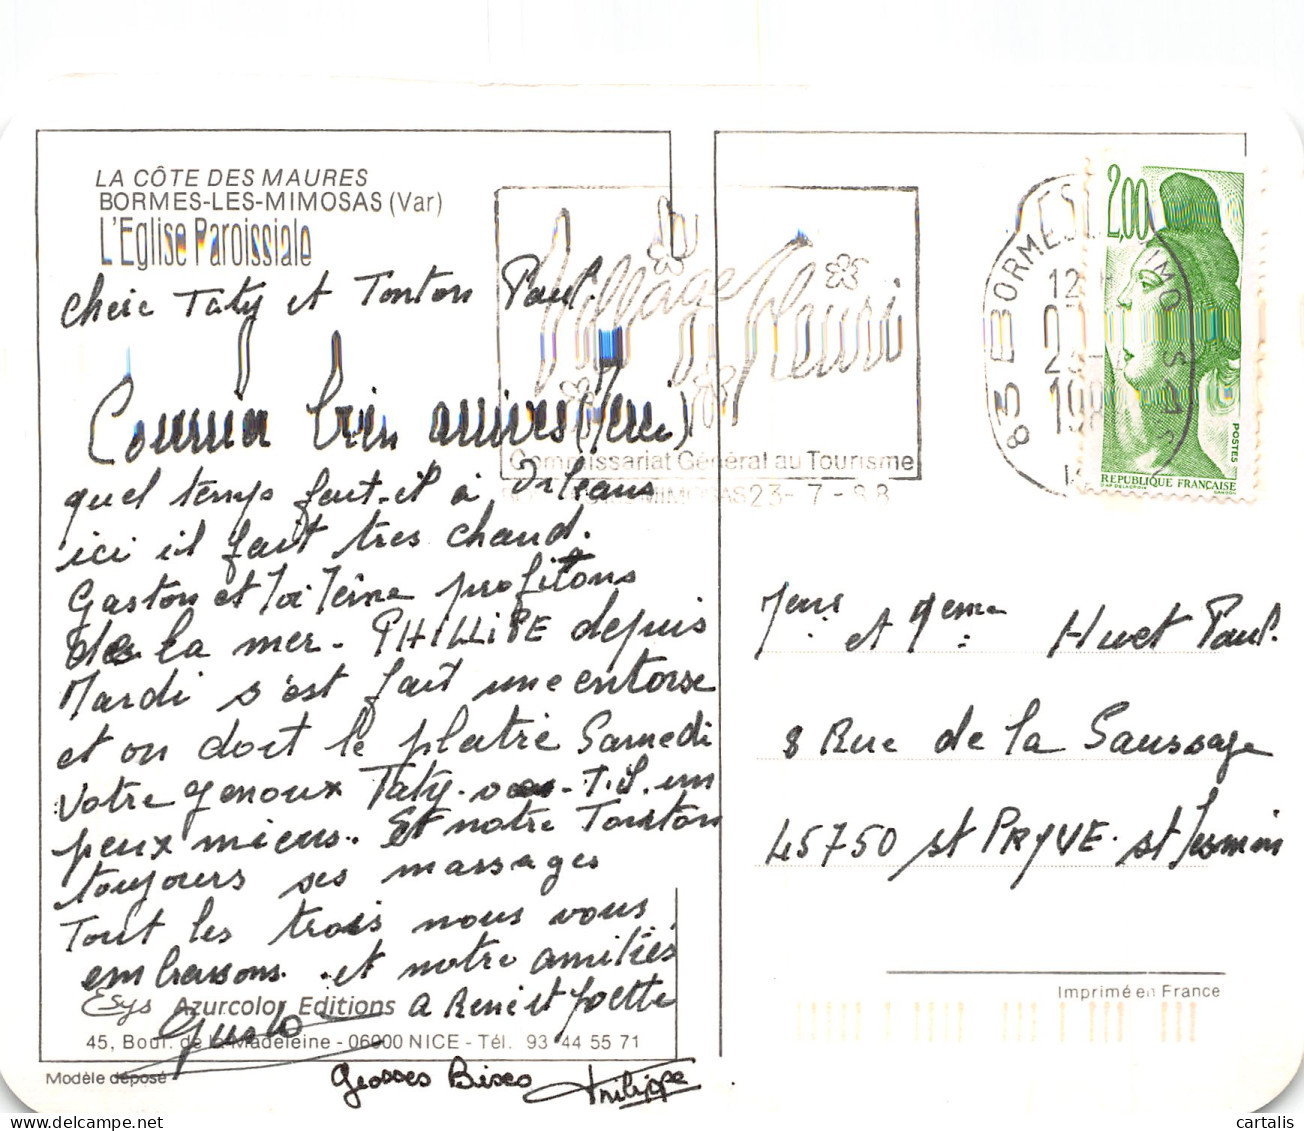 LA CÔTE DES MAURES
BORMES-LES-MIMOSAS (Var)
L'Eglise Paroissiale
chère Taty et Tonton Paul.
Courrier bien arrivés (Merci)
quel temps fait-il à Orléans
ici il fait tres chaud.
Gaston et profitons
de la mer - PHILLIPE depuis
Mardi s'est fait une entorse
et on doit le platré Samedi
Votre genoux Taty - T.il un
peux mieux.. Et notre Tonton
toujours ses massages
Tout les trois nous vous
embrassons. et notre amitiés
a René et Josette
Grosses Bises Philippe
Esys Azurcolor Editions
45, Boul. de la Madeleine - 06000 NICE - Tél. 93 44 55 71
Modèle déposé
Village Fleuri
Commissariat Général au Tourisme
MIMOSAS 23-7-88
83 BORMES LES MIMOSAS
2,00
POSTES
REPUBLIQUE FRANÇAISE
D'AP. DELACROIX GANDON
Mr et Mme Huet Paul.
8 Rue de la Saussaye
45750 st PRYVE. st Mesmin
Imprimé en France
cartalis